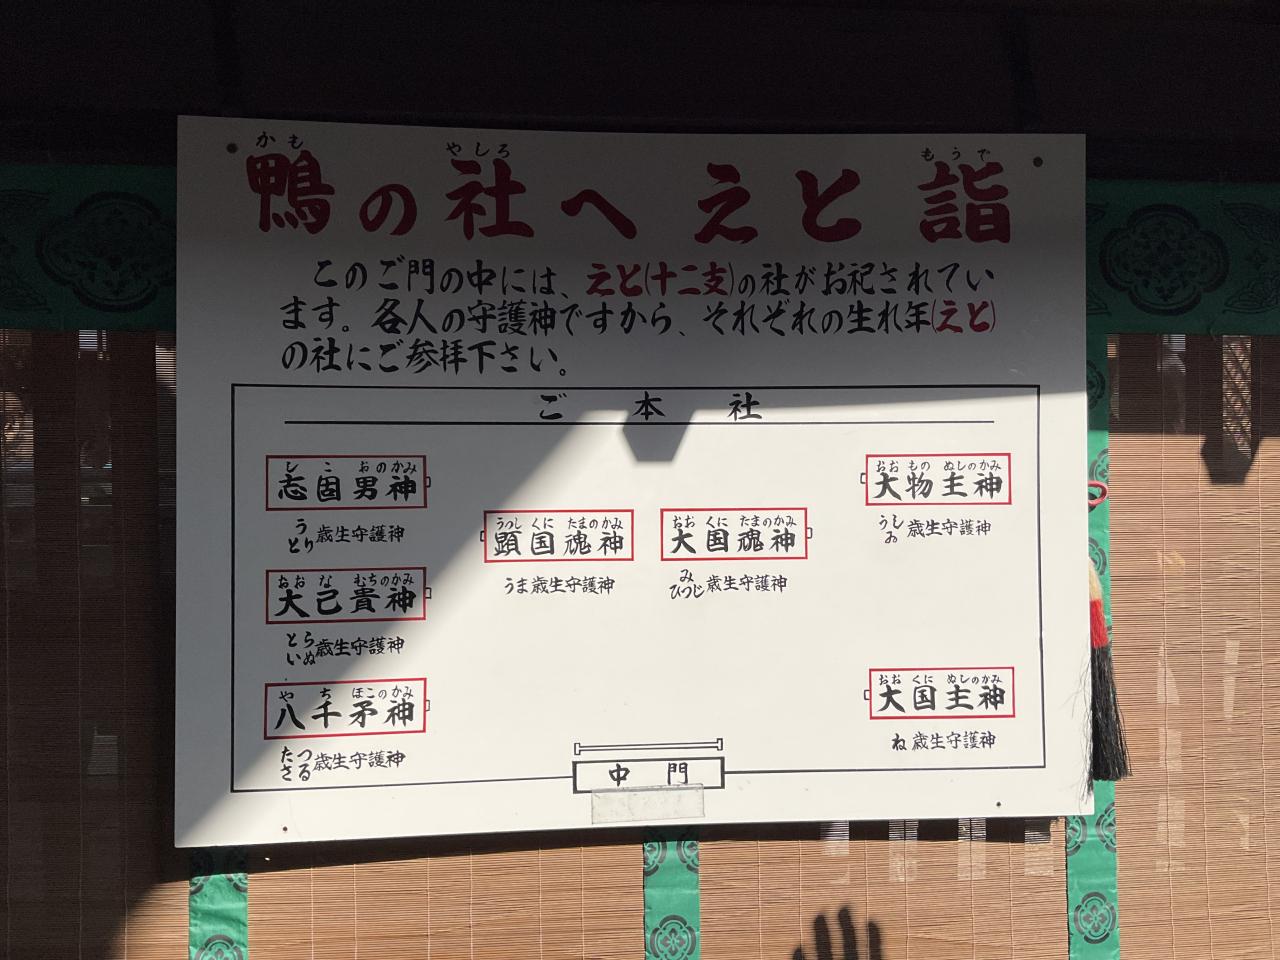 かも やしろ もうで
鴨の社へ えと 詣
このご門の中には、えと(十二支)の社がお祀されてい
ます。各人の守護神ですから、それぞれの生れ年(えと)
の社にご参拝下さい。
ご 本 社
しこおのかみ
志固男神
うとり歳生守護神
おおなむちのかみ
大己貴神
とらいぬ歳生守護神
やちほこのかみ
八千矛神
たつさる歳生守護神
うつしくにたまのかみ
顕国魂神
うま歳生守護神
おおくにたまのかみ
大国魂神
みひつじ歳生守護神
おおものぬしのかみ
大物主神
うしゐ歳生守護神
おおくにぬしのかみ
大国主神
ね歳生守護神
中 門